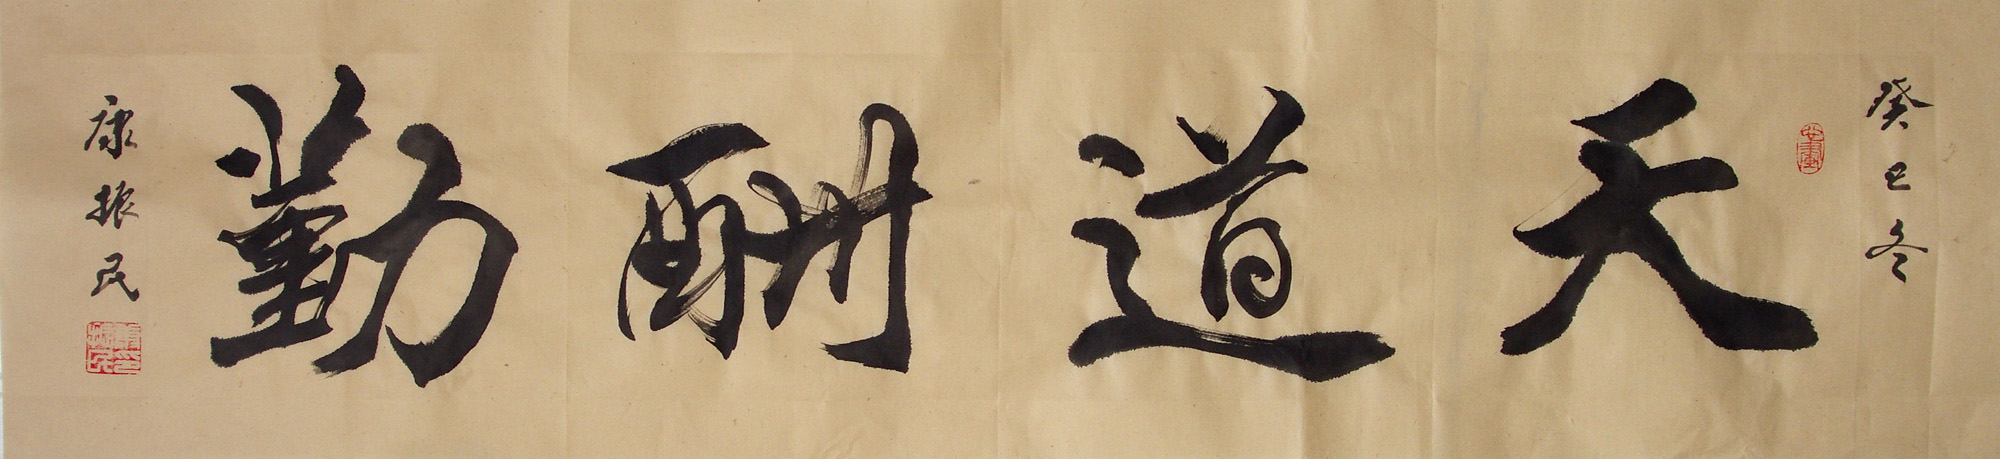 癸巳冬
天道酬勤
康振民